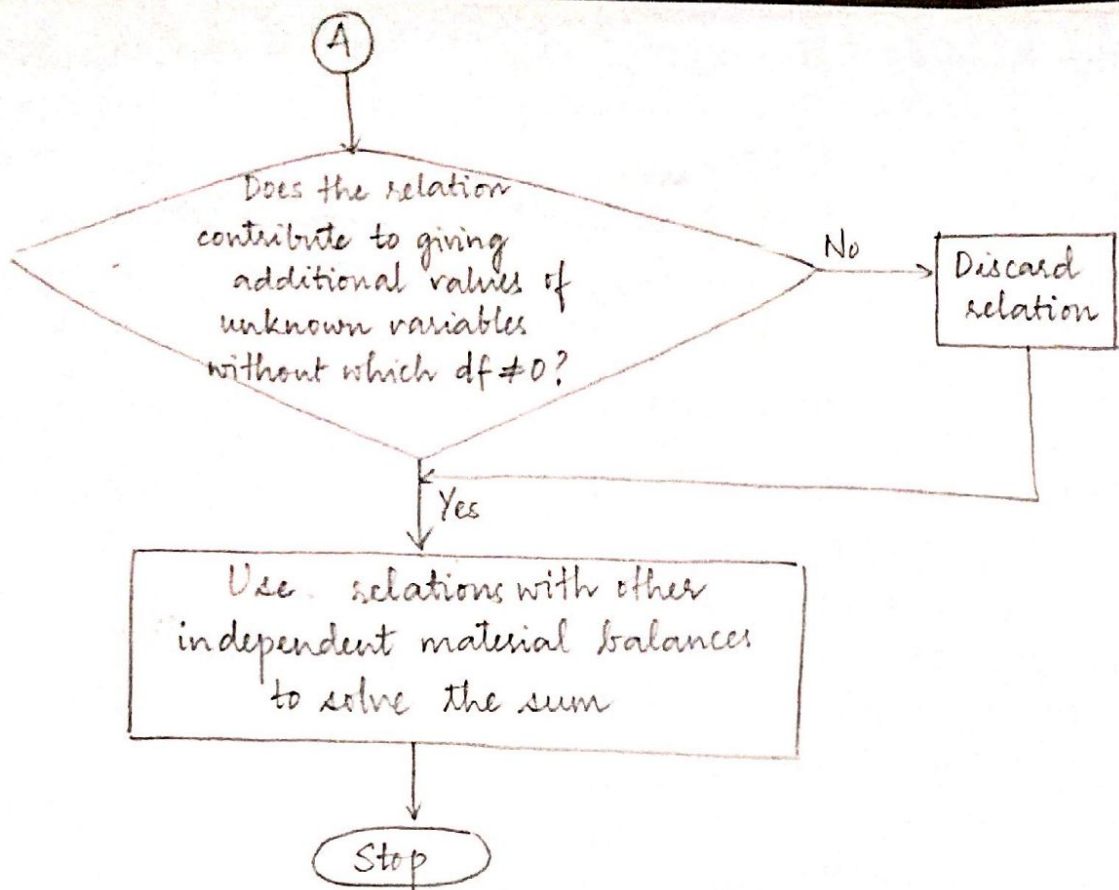 A
Does the relation
contribute to giving
additional values of
unknown variables
without which df ≠ 0?
No
Discard
relation
Yes
Use relations with other
independent material balances
to solve the sum
Stop